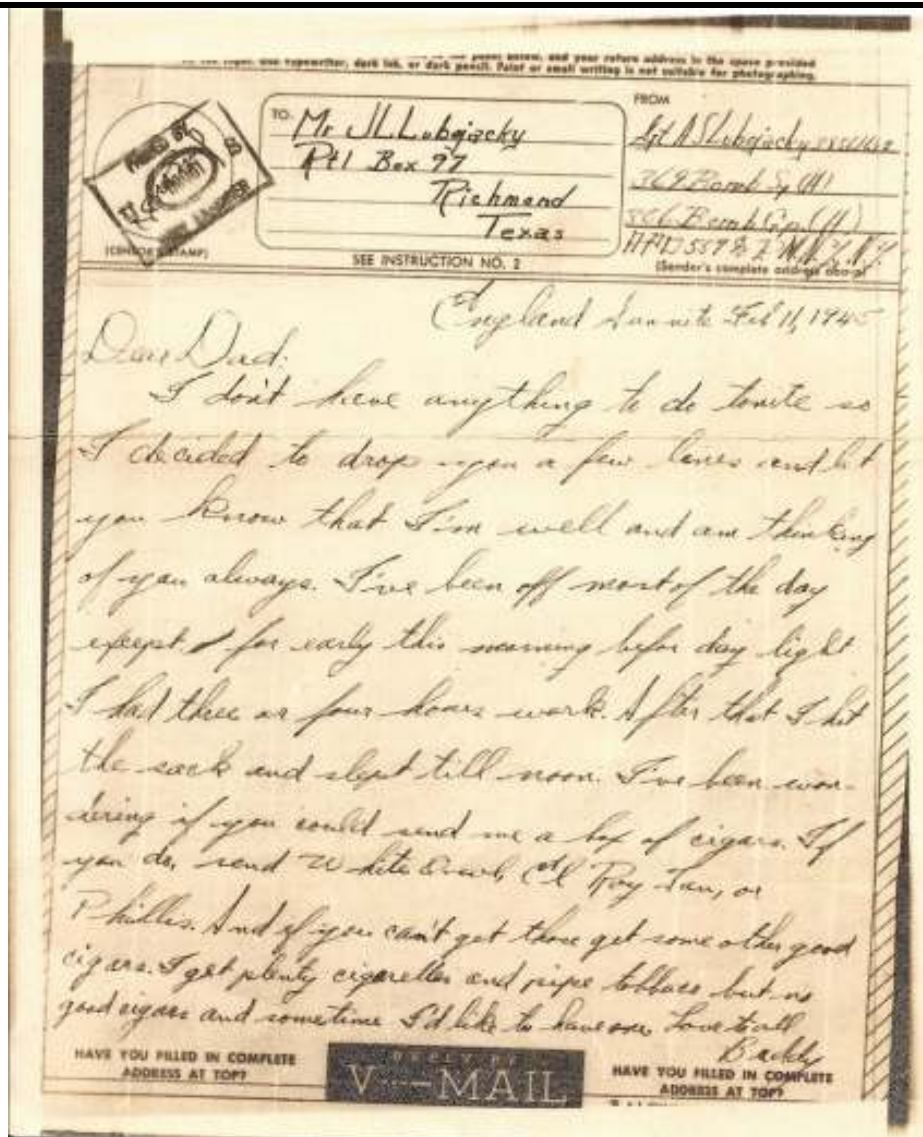 and your return address in the space provided
typewriter, dark ink, or dark pencil. Faint or small writing is not suitable for photographing.
PASSED BY
(CENSOR'S STAMP)
TO:
Mr J L Lubojacky
Rt 1 Box 97
Richmond
Texas
SEE INSTRUCTION NO. 2
FROM
Sgt A S Lubojacky
369 Bomb Sq (H)
306 Bomb Gp. (H)
APO 557 % P.M. N.Y. N.Y.
(Sender's complete address above)
England Sunnite Feb 11, 1945
Dear Dad:
I don't have anything to do tonite so
I decided to drop you a few lines and let
you know that I'm well and am thinking
of you always. I've been off most of the day
except for early this morning befor day light
I had three or four hours work. After that I hit
the sack and slept till noon. I've been won-
dering if you could send me a box of cigars. If
you do, send White Owls, El Roy Tan, or
Phillies. And if you can't get those get some other good
cigars. I get plenty cigarettes and pipe tobbaco but no
good cigars and sometime I'd like to have one. Love to all
Buddy
HAVE YOU FILLED IN COMPLETE
ADDRESS AT TOP?
REPLY BY
V···—MAIL
HAVE YOU FILLED IN COMPLETE
ADDRESS AT TOP?